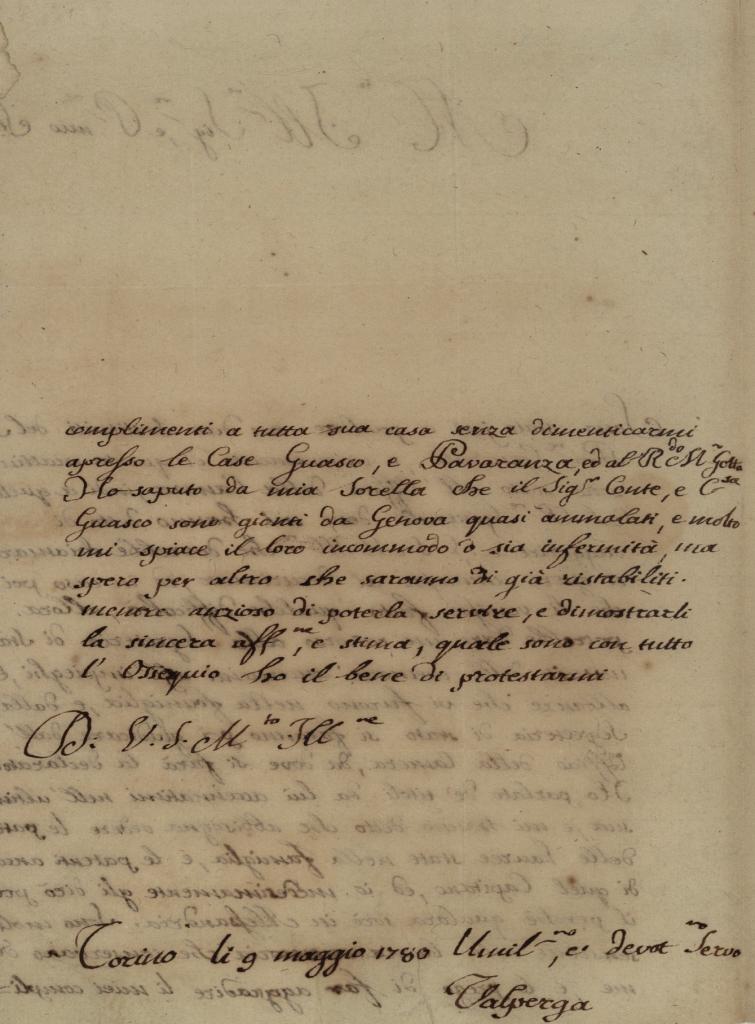 complimenti a tutta sua casa senza dimenticarmi
apresso le Case Guasco, e Pavaranza, ed al R.do
Ho saputo da mia Sorella che il Sig.r Conte, e C.sa
Guasco sono gionti da Genova quasi ammalati, e molto
mi spiace il loro incommodo o sia infermità, ma
spero per altro che saranno di già ristabiliti.
mentre anzioso di poterla servire, e dimostrarli
la sincera aff.ne, e stima, quale sono con tutto
l'Ossequio ho il bene di protestarmi
D. V. S. M.to Ill.ne
Torino li 9 maggio 1780 Umil.mo, e devot.mo Servo
Valperga